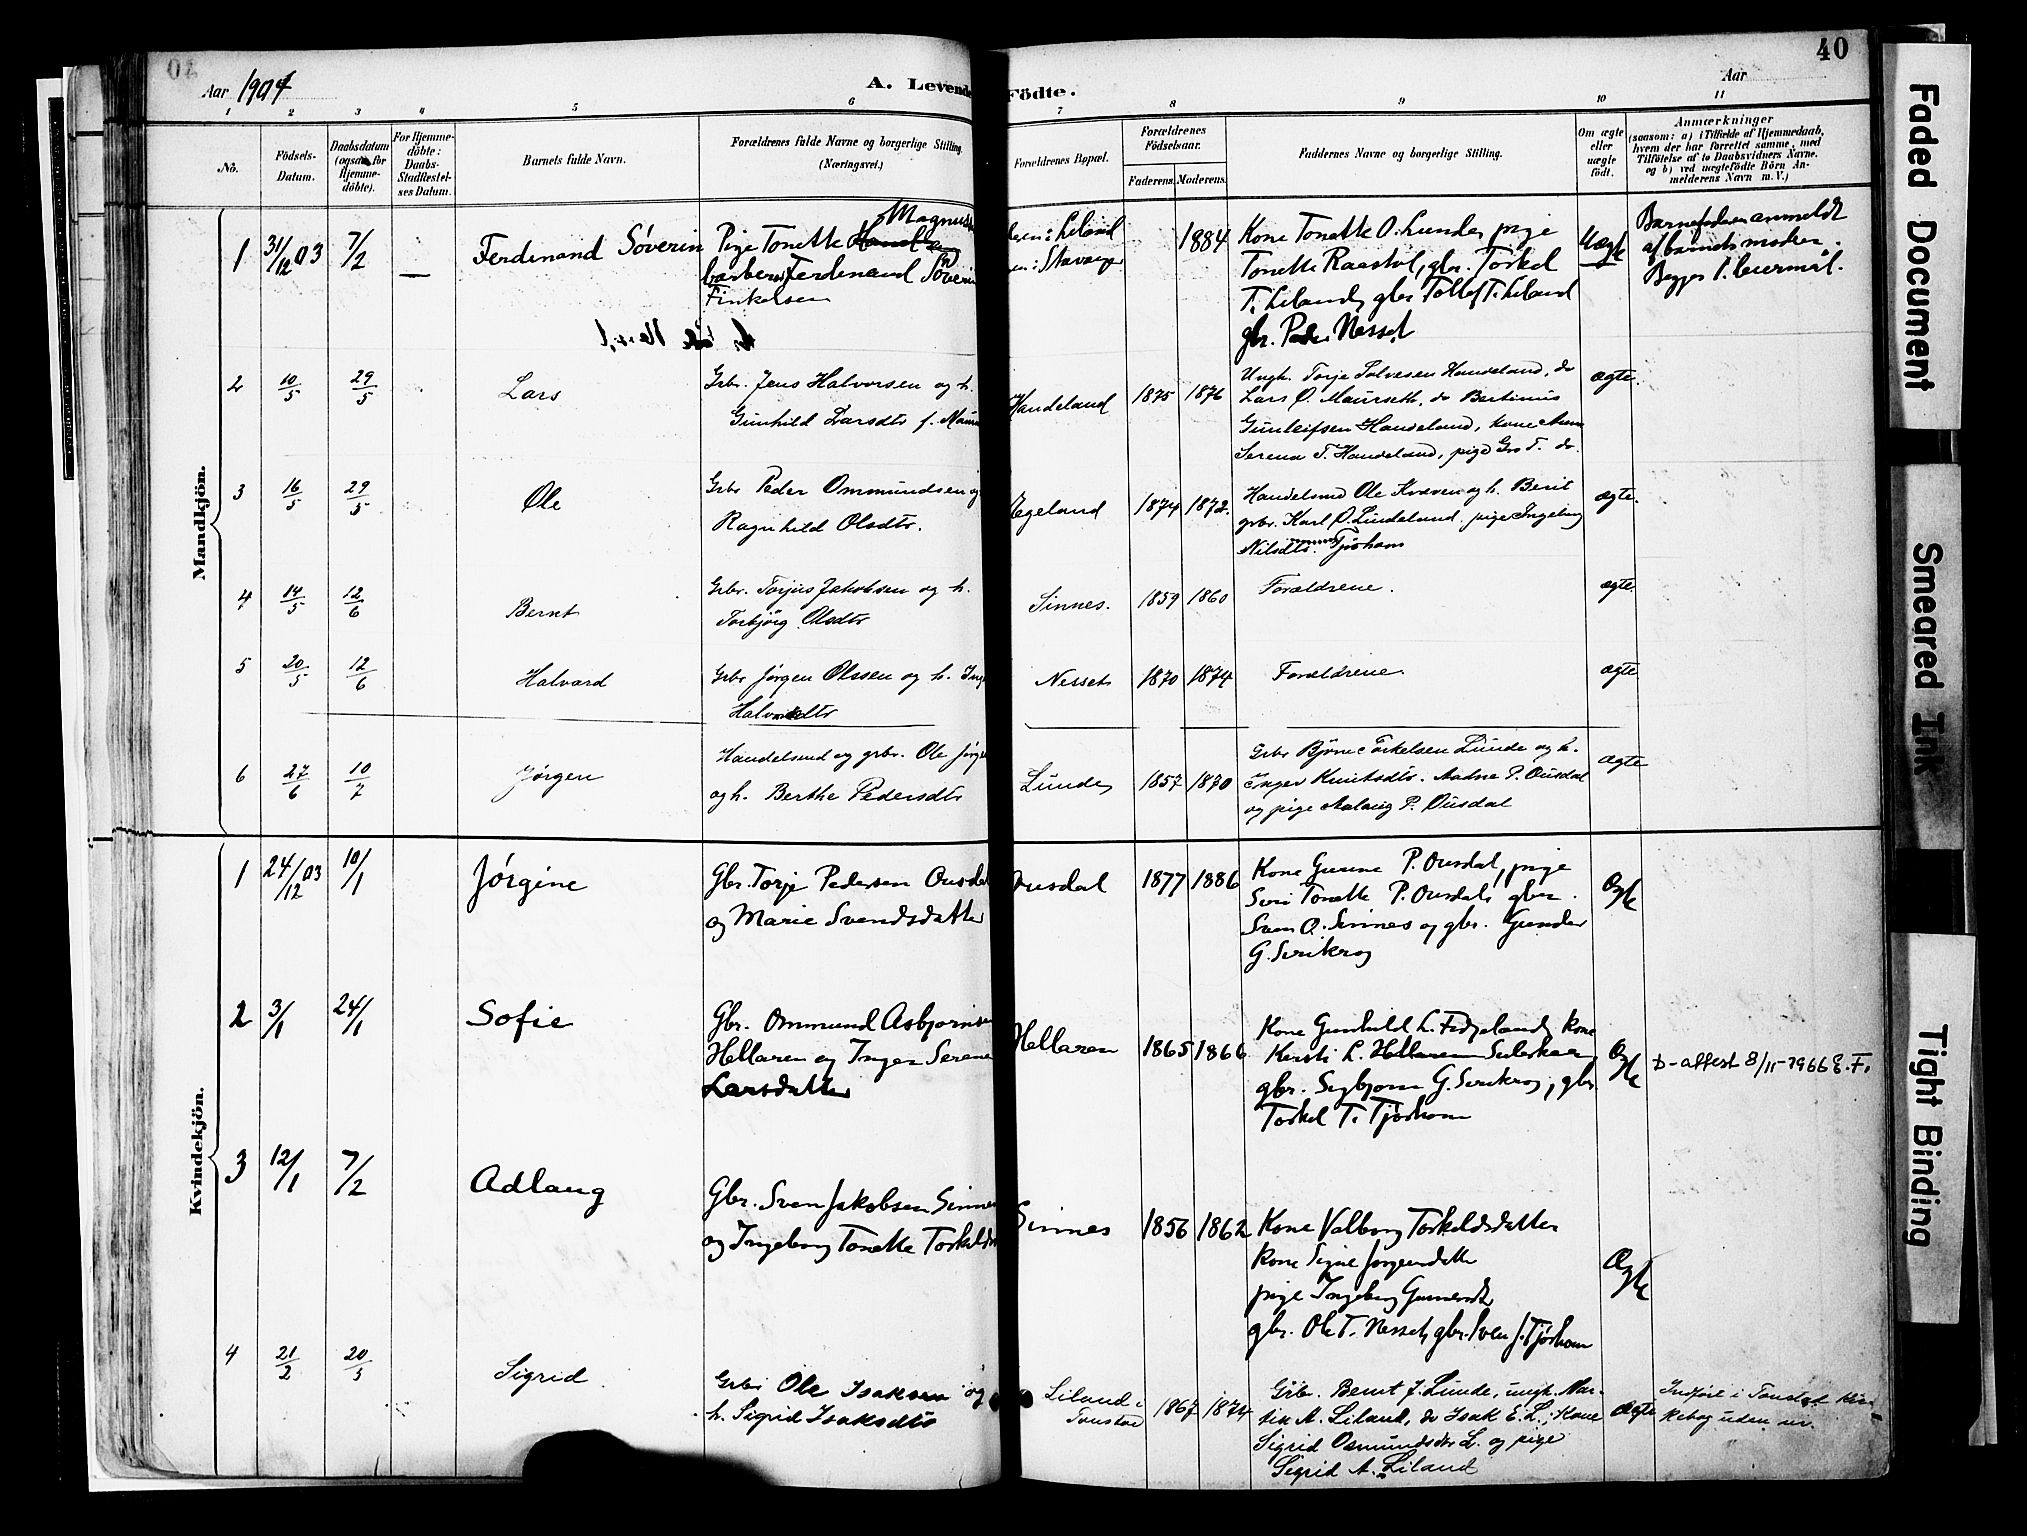 40
Aar 1904
A. Levende Födte.
Aar
1 2 3 4 5 6 7 8 9 10 11
No.
Födsels-Datum.
Daabsdatum (ogsaa for Hjemme-döbte).
For Hjemme-döbte: Daabs-Stadfæstel-ses Datum.
Barnets fulde Navn.
Forældrenes fulde Navne og borgerlige Stilling. (Næringsvei.)
Forældrenes Bopæl.
Forældrenes Födselsaar.
Faderens. Moderens.
Faddernes Navne og borgerlige Stilling.
Om ægte eller uægte födt.
Anmærkninger
(saasom: a) i Tilfælde af Hjemmedaab,
hvem der har forrettet samme, med
Tilföielse af to Daabsvidners Navne,
og b) ved uægtefödte Börn An-
melderens Navn m. V.)
Mandkjön.
1 31/12 03 7/2 — Ferdinand Søverin
Pige Tonette Magnus
barberer Ferdinand Søverin
Finkelsen
Liland
Stavanger
1884
Kone Tonette O. Lunde, pige
Tonette Raastøl, gbr. Torkel
T. Liland, gbr. Tollef T. Liland
gbr. Peder Nesset
Uægte
Barnefaderen anmeldt
af barnets moder.
Begges 1. leiermål.
2 10/5 29/5 Lars
Grbr. Jens Halvorsen og h.
Gunhild Larsdtr f.
Handeland 1875 1876
Ungk. Torje Salvesen Handeland, do
Lars O. Maurseth, do Bertinius
Gunleifsen Handeland, kone Anna
Serena T. Handeland, pige Gro T. do.
ægte.
3 16/5 29/5 Ole
Grbr Peder Ommundsen og
Ragnhild Olsdtr.
Ægeland 1874 1872.
Handelsmd Ole Kvæven og h. Berit
grbr. Karl O. Lindeland, pige Ingeborg
Nilsdtr. Tjørhom
ægte.
4 14/5 12/6 Bernt
Grbr. Torjus Jakobsen og h.
Torbjörg Olsdtr
Sinnes. 1859 1860
Forældrene.
ægte.
5 20/5 12/6 Halvard
Grbr Jørgen Olssen og h. Inge
Halvorsdtr
Nesset 1870 1874
Forældrene.
ægte
6 27/6 10/7 Jørgen
Handelsmd og grbr. Ole Jörge
og h. Berthe Pedersdtr
Lunde 1857 1870
Grbr Bjørne Torkelsen Lunde og h.
Inger Knutsdtr. Aadne P. Ousdal
og pige Aalaug P. Ousdal
ægte
Kvindekjön.
1 24/12 03 10/1 Jórgine
Gbr. Torje Pedersen Ousdal
og Marie Svendsdatter
Ousdal 1877 1886
Kone Gurine P. Ousdal, pige
Siri Tonette P. Ousdal, gbr.
Sven O. Sinnes og gbr. Gunder
G. Sirikrog
Ægte
2 3/1 24/1 Sofie
Gbr. Ommund Asbjørnsen
Hellaren og Inger Serene
Larsdatter
Hellaren 1865 1866
Kone Gunhild L. Fidjeland, kone
Kersti L. Hellaren Suleskar,
gbr. Sigbjørn G. Sirikrog, gbr
Torkel T. Tjórhom
Ægte
D-attest 8/11-1966 E.F.
3 12/1 7/2 Adlaug
Gbr. Sven Jakobsen Sinnes
og Ingeborg Tonette Torkelds
Sinnes 1856 1862
Kone Valborg Torkeldsdatter
kone Signe Jørgensdatter
pige Ingeborg Gunnersdtr
gbr. Ole T. Nesset, gbr. Sven J. Tjórhom
Ægte
4 21/2 20/3 Sigrid
Grbr Ole Isaksen og
h. Sigrid Isaksdtr
Liland i
Tonstad
1867 1874
Grbr. Bernt J. Lunde, ungk. Mar-
tin A. Liland, do Isak E. L., Kone
Sigrid Osmundsdtr L. og pige
Sigrid A. Liland
ægte
Indført i Tonstad kir-
kebog uden nr.
Faded Document
Smeared Ink
Tight Binding